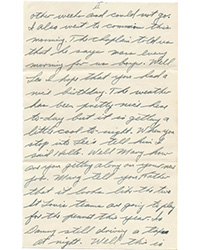 2
other week and could not go.
I also went to communion this
morning. The chaplain told us
that he says mass every
morning for us boys. Well
he is hope that you had a
nice birthday. The weather
has been pretty nice here
to-day but it is getting a
little cool to-night. When you
step into Lee's tell him I
said Hello. Well Mary, how
are you getting along on your
job. Mary tell your Father
that it looks like the two
St Louis teams are going to play
for the pennant this year. Is
Danny still driving a
at night. Well this is